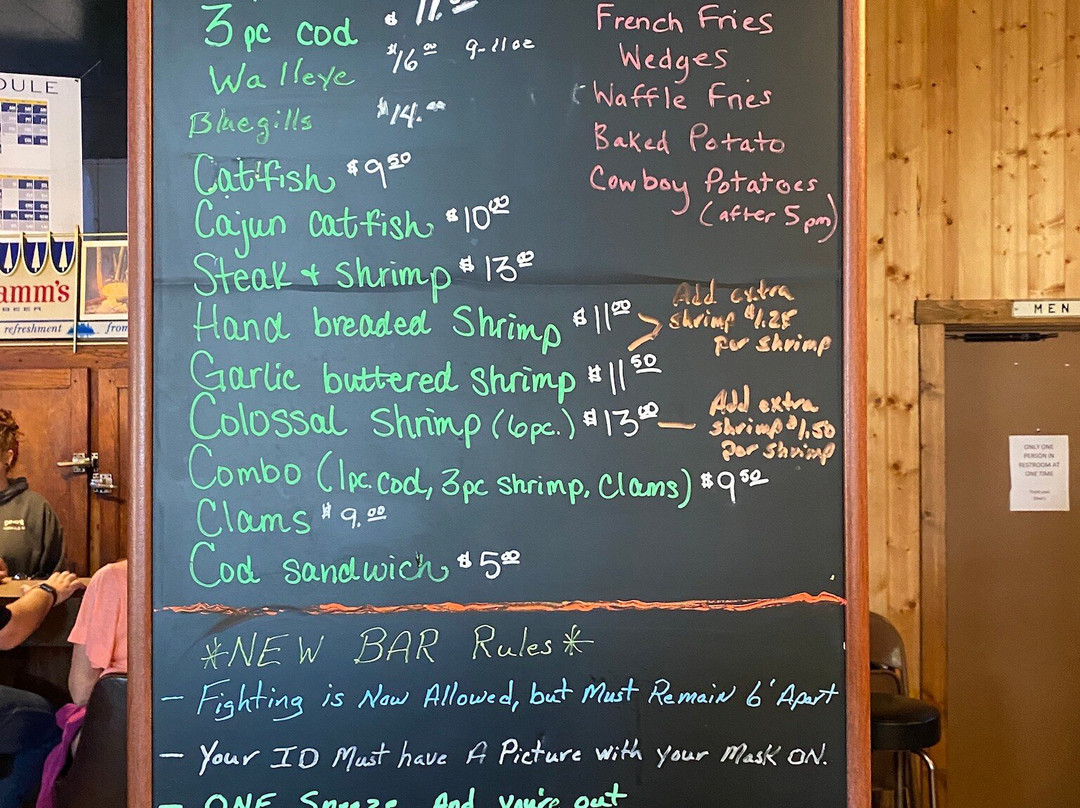 3 pc cod $11.00
Walleye $16.00 9-11oz
Bluegills $14.00
Catfish $9.50
Cajun catfish $10.00
Steak + shrimp $13.00
Hand breaded Shrimp $11.00
Garlic buttered shrimp $11.50
Add extra
shrimp $1.25
per shrimp
Colossal Shrimp (6pc.) $13.00
Add extra
shrimp $1.50
per shrimp
Combo (1pc. cod, 3pc shrimp, Clams) $9.50
Clams $9.00
Cod sandwich $5.00
French Fries
Wedges
Waffle Fries
Baked Potato
Cowboy Potatoes
(after 5 pm)
*NEW BAR Rules*
- Fighting is Now Allowed, but Must Remain 6' Apart
- Your ID Must have A Picture with your Mask ON.
- ONE Sneeze And you're out
DULE
amm's
BEER
refreshment
from
MEN
ONLY ONE
PERSON IN
RESTROOM AT
ONE TIME